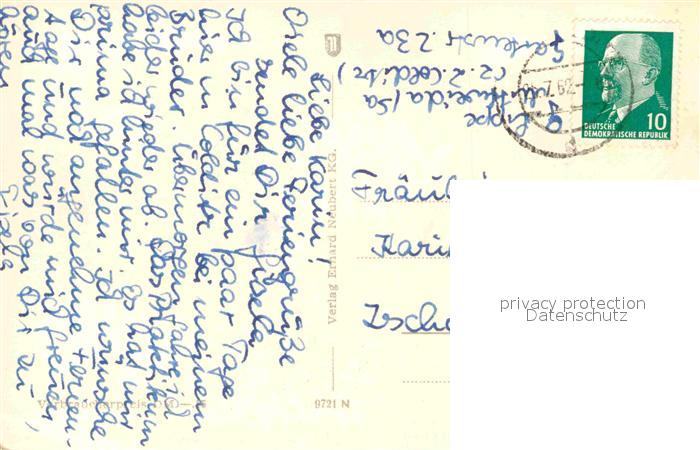 Liebe Karin!
Viele liebe Feriengrüße
sendet Dir Gisela.
Ich bin für ein paar Tage
hier in Colditz bei meinem
Bruder. Übermorgen fahre ich
leider wieder ab. Das Praktikum
habe ich hinter mir. Es hat mir
prima gefallen. Ich wünsche
Dir noch angenehme Ferien-
tage und würde mich freuen,
auch mal was von Dir zu
hören. Gisela
G. Lippe
Mittweida/Sa
(z. Z. Colditz)
Gartenstr. 23a
7.62
10
DEUTSCHE
DEMOKRATISCHE REPUBLIK
Fräul
Kari
Zsch
privacy protection
Datenschutz
Verlag Erhard Neubert KG.
Verbraucherpreis DM
9721 N